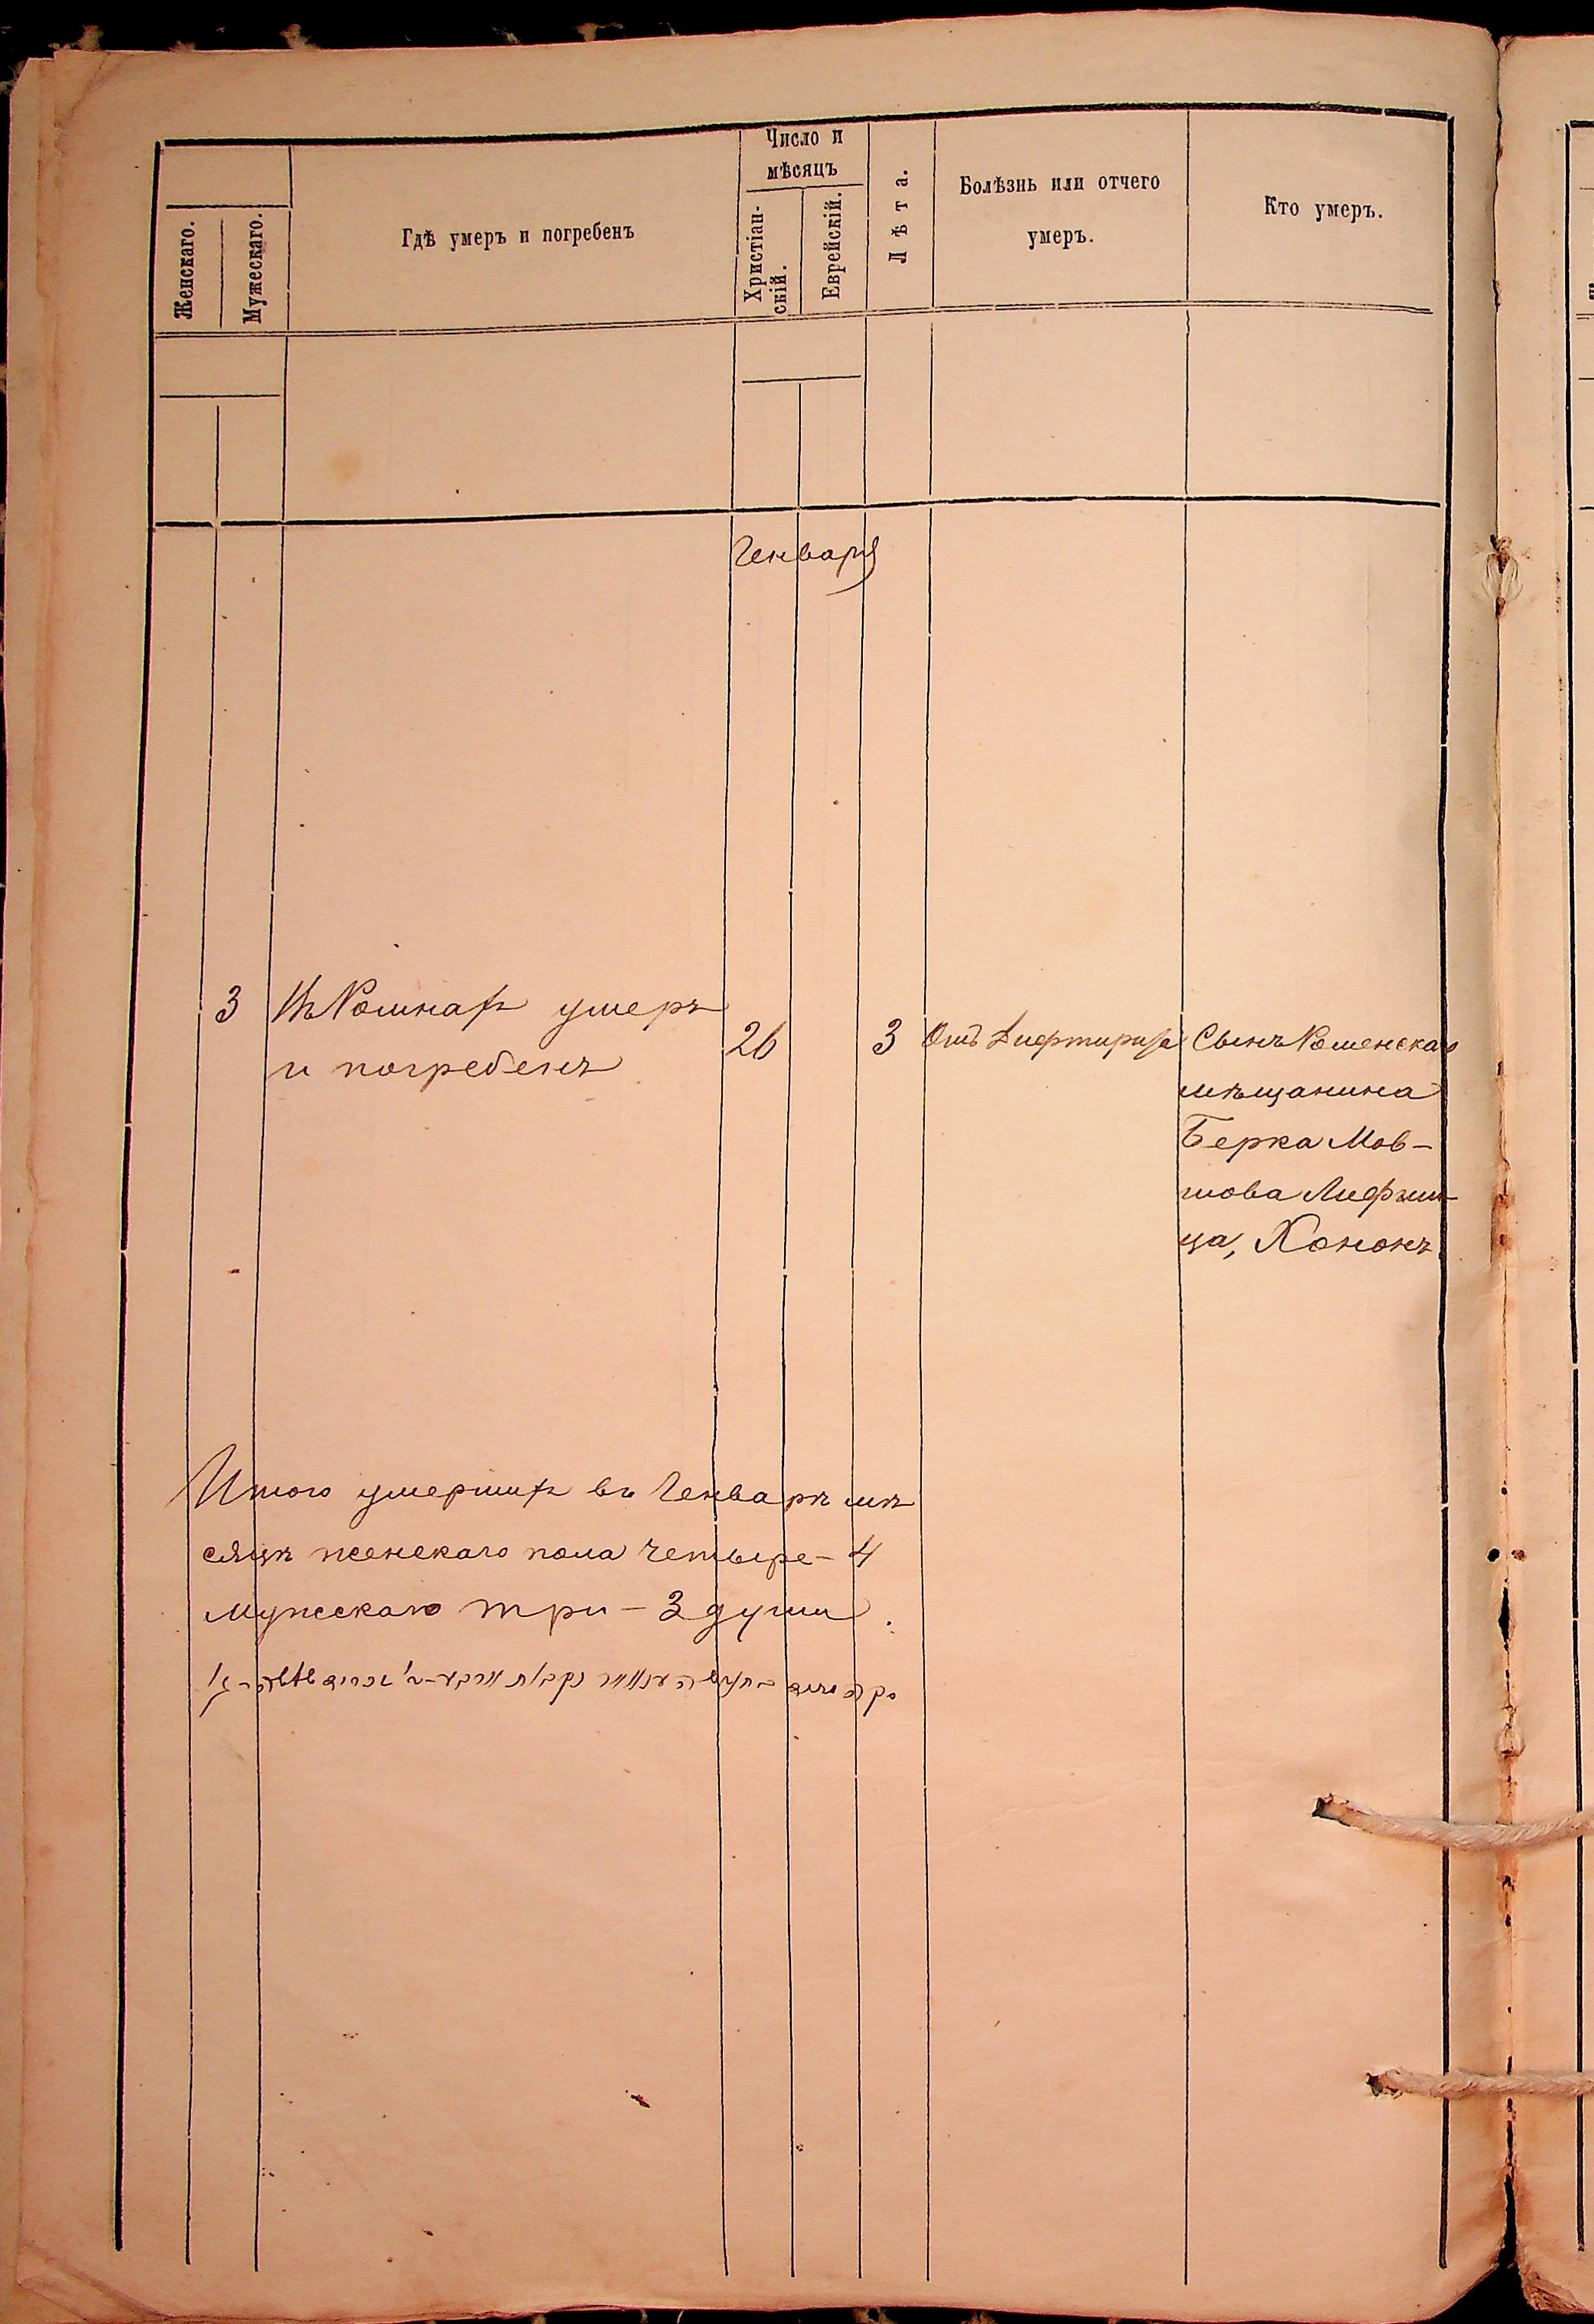 Число и
мѣсяцъ
Женскаго.
Мужескаго.
Гдѣ умеръ и погребенъ
Христіан-
скій.
Еврейскій.
Лѣта.
Болѣзнь или отчего
умеръ.
Кто умеръ.
Генваря
3 Въ Ромнахъ умеръ
и погребенъ
26
3
Отъ Дифтирита
Сынъ Роменскаго
мѣщанина
Берка Мов-
шова Лифши-
ца, Хононъ
Итого умершихъ въ Генварѣ мѣ
сяцѣ женскаго пола четыре - 4
Мужескаго три - 3 души.